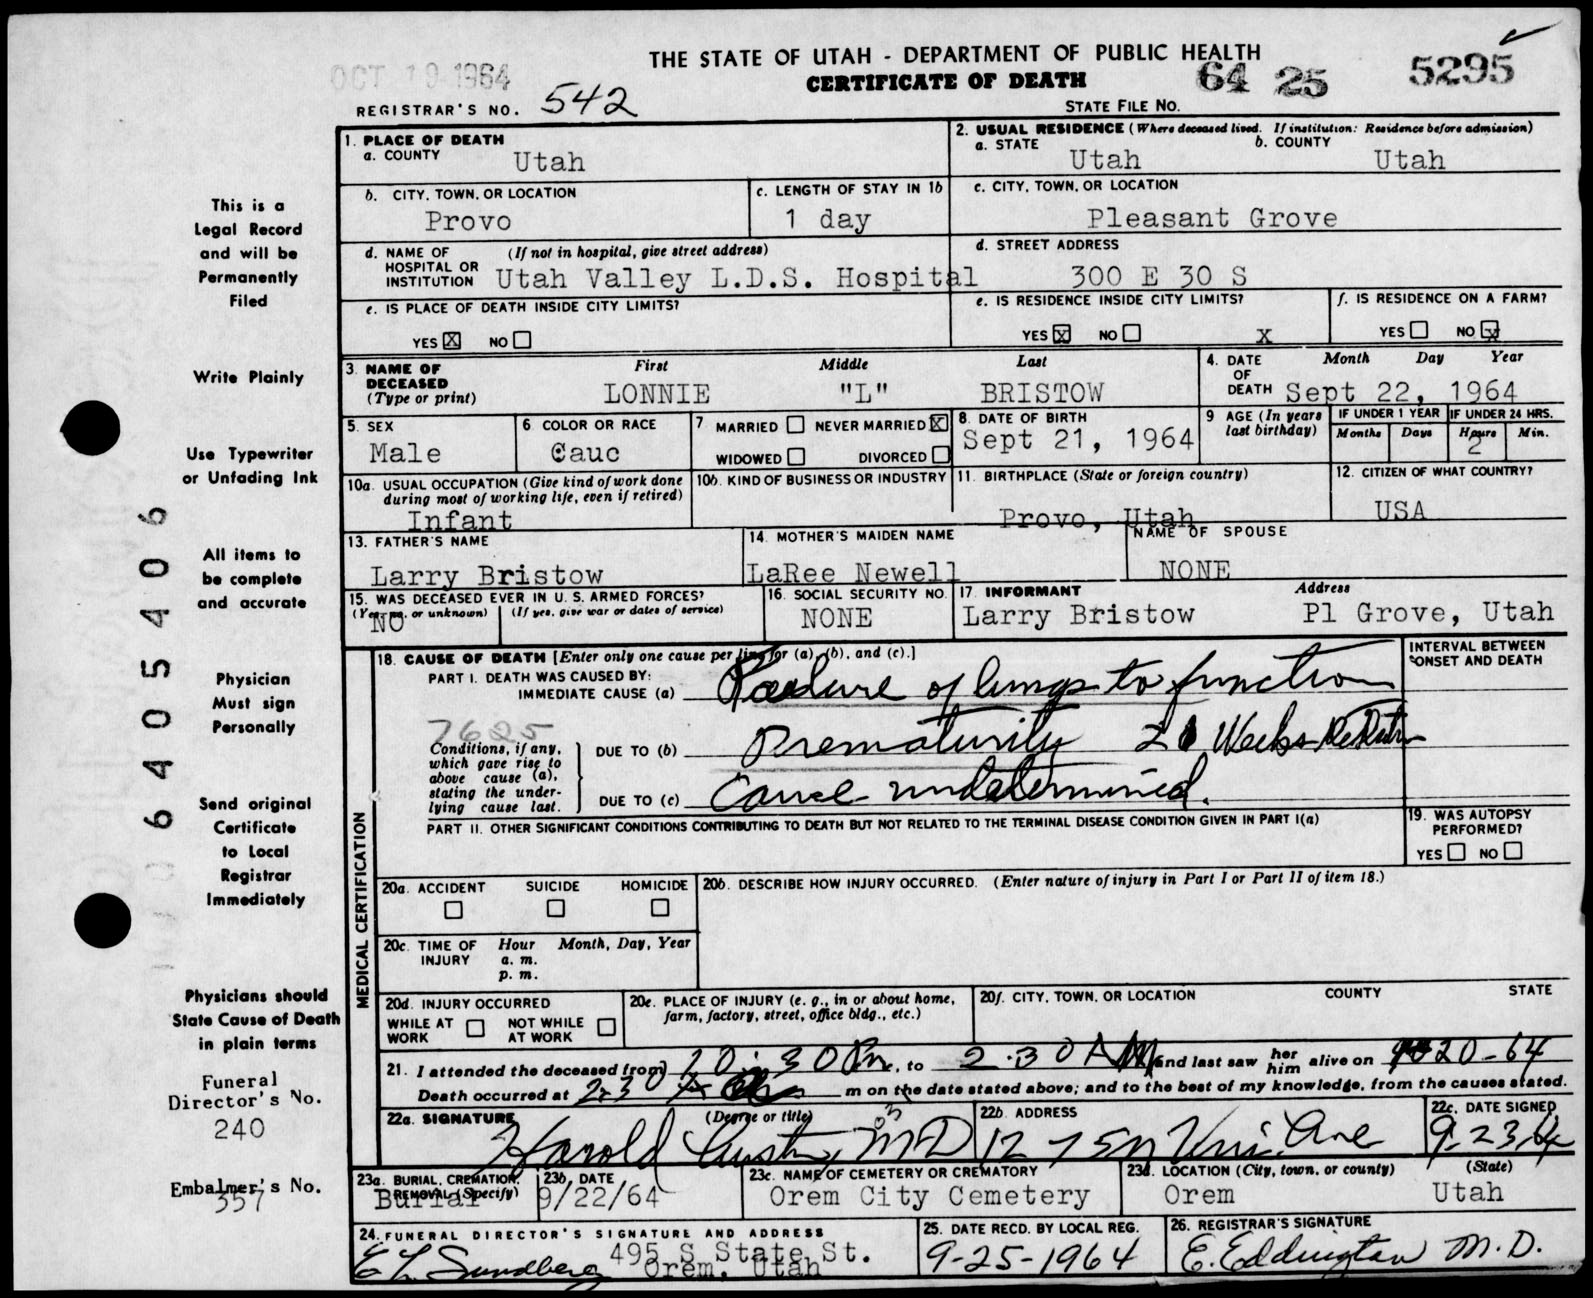 THE STATE OF UTAH - DEPARTMENT OF PUBLIC HEALTH
OCT 19 1964
CERTIFICATE OF DEATH
64 25 5295
REGISTRAR'S NO. 542
STATE FILE NO.
1. PLACE OF DEATH
a. COUNTY Utah
2. USUAL RESIDENCE (Where deceased lived. If institution: Residence before admission)
a. STATE Utah b. COUNTY Utah
b. CITY, TOWN, OR LOCATION Provo
c. LENGTH OF STAY IN 1b 1 day
c. CITY, TOWN, OR LOCATION Pleasant Grove
d. NAME OF HOSPITAL OR INSTITUTION (If not in hospital, give street address) Utah Valley L.D.S. Hospital
d. STREET ADDRESS 300 E 30 S
e. IS PLACE OF DEATH INSIDE CITY LIMITS?
YES X NO
e. IS RESIDENCE INSIDE CITY LIMITS?
YES X NO X
f. IS RESIDENCE ON A FARM?
YES NO X
3. NAME OF DECEASED (Type or print) First Middle Last
LONNIE "L" BRISTOW
4. DATE OF DEATH Month Day Year
Sept 22, 1964
5. SEX Male
6. COLOR OR RACE Cauc
7 MARRIED NEVER MARRIED X
WIDOWED DIVORCED
8. DATE OF BIRTH Sept 21, 1964
9 AGE (In years last birthday)
IF UNDER 1 YEAR Months Days
IF UNDER 24 HRS. Hours Min.
2
10a. USUAL OCCUPATION (Give kind of work done during most of working life, even if retired)
Infant
10b. KIND OF BUSINESS OR INDUSTRY
11. BIRTHPLACE (State or foreign country)
Provo, Utah
12. CITIZEN OF WHAT COUNTRY?
USA
13. FATHER'S NAME
Larry Bristow
14. MOTHER'S MAIDEN NAME
LaRee Newell
NAME OF SPOUSE
NONE
15. WAS DECEASED EVER IN U. S. ARMED FORCES?
(Yes, no, or unknown) (If yes, give war or dates of service)
NO
16. SOCIAL SECURITY NO.
NONE
17. INFORMANT Address
Larry Bristow Pl Grove, Utah
MEDICAL CERTIFICATION
18. CAUSE OF DEATH [Enter only one cause per line for (a), (b), and (c).]
INTERVAL BETWEEN ONSET AND DEATH
PART I. DEATH WAS CAUSED BY:
IMMEDIATE CAUSE (a) Failure of lungs to function
7625
Conditions, if any, which gave rise to above cause (a), stating the underlying cause last.
DUE TO (b) Prematurity 21 Weeks
DUE TO (c) Cause undetermined.
PART II. OTHER SIGNIFICANT CONDITIONS CONTRIBUTING TO DEATH BUT NOT RELATED TO THE TERMINAL DISEASE CONDITION GIVEN IN PART I(a)
19. WAS AUTOPSY PERFORMED?
YES NO
20a. ACCIDENT SUICIDE HOMICIDE
20b. DESCRIBE HOW INJURY OCCURRED. (Enter nature of injury in Part I or Part II of item 18.)
20c. TIME OF INJURY Hour Month, Day, Year
a. m.
p. m.
20d. INJURY OCCURRED
WHILE AT WORK NOT WHILE AT WORK
20e. PLACE OF INJURY (e. g., in or about home, farm, factory, street, office bldg., etc.)
20f. CITY, TOWN, OR LOCATION COUNTY STATE
21. I attended the deceased from 10:30 Pm, to 2:30 AM and last saw her him alive on 9-20-64
Death occurred at 2:30 A m on the date stated above; and to the best of my knowledge, from the causes stated.
22a. SIGNATURE (Degree or title)
Harold Austin, MD
22b. ADDRESS
1275 N Univ. Ave
22c. DATE SIGNED
9-23-64
23a. BURIAL, CREMATION, REMOVAL (Specify)
Burial
23b. DATE
9/22/64
23c. NAME OF CEMETERY OR CREMATORY
Orem City Cemetery
23d. LOCATION (City, town, or county) (State)
Orem Utah
24. FUNERAL DIRECTOR'S SIGNATURE AND ADDRESS
E L Sundberg 495 S State St.
Orem, Utah
25. DATE RECD. BY LOCAL REG.
9-25-1964
26. REGISTRAR'S SIGNATURE
E. Eddington M.D.
This is a
Legal Record
and will be
Permanently
Filed
Write Plainly
Use Typewriter
or Unfading Ink
All items to
be complete
and accurate
Physician
Must sign
Personally
Send original
Certificate
to Local
Registrar
Immediately
Physicians should
State Cause of Death
in plain terms
Funeral
Director's No.
240
Embalmer's No.
357
6405406